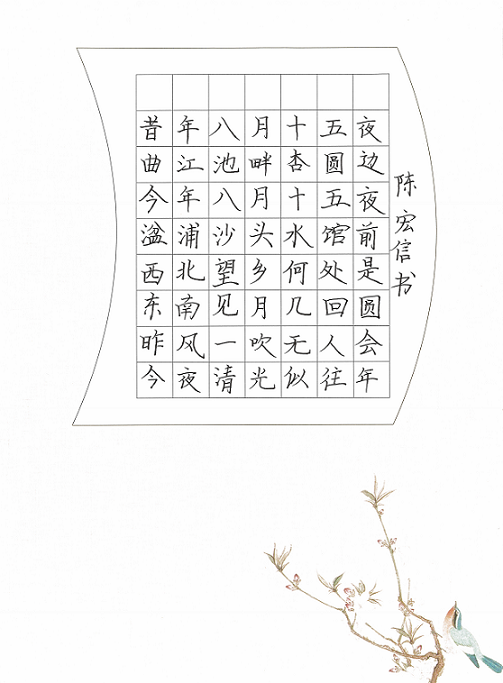 昔年八月十五夜
曲江池畔杏圆边
今年八月十五夜
湓浦沙头水馆前
西北望乡何处是
东南见月几回圆
昨风一吹无人会
今夜清光似往年
陈宏信书